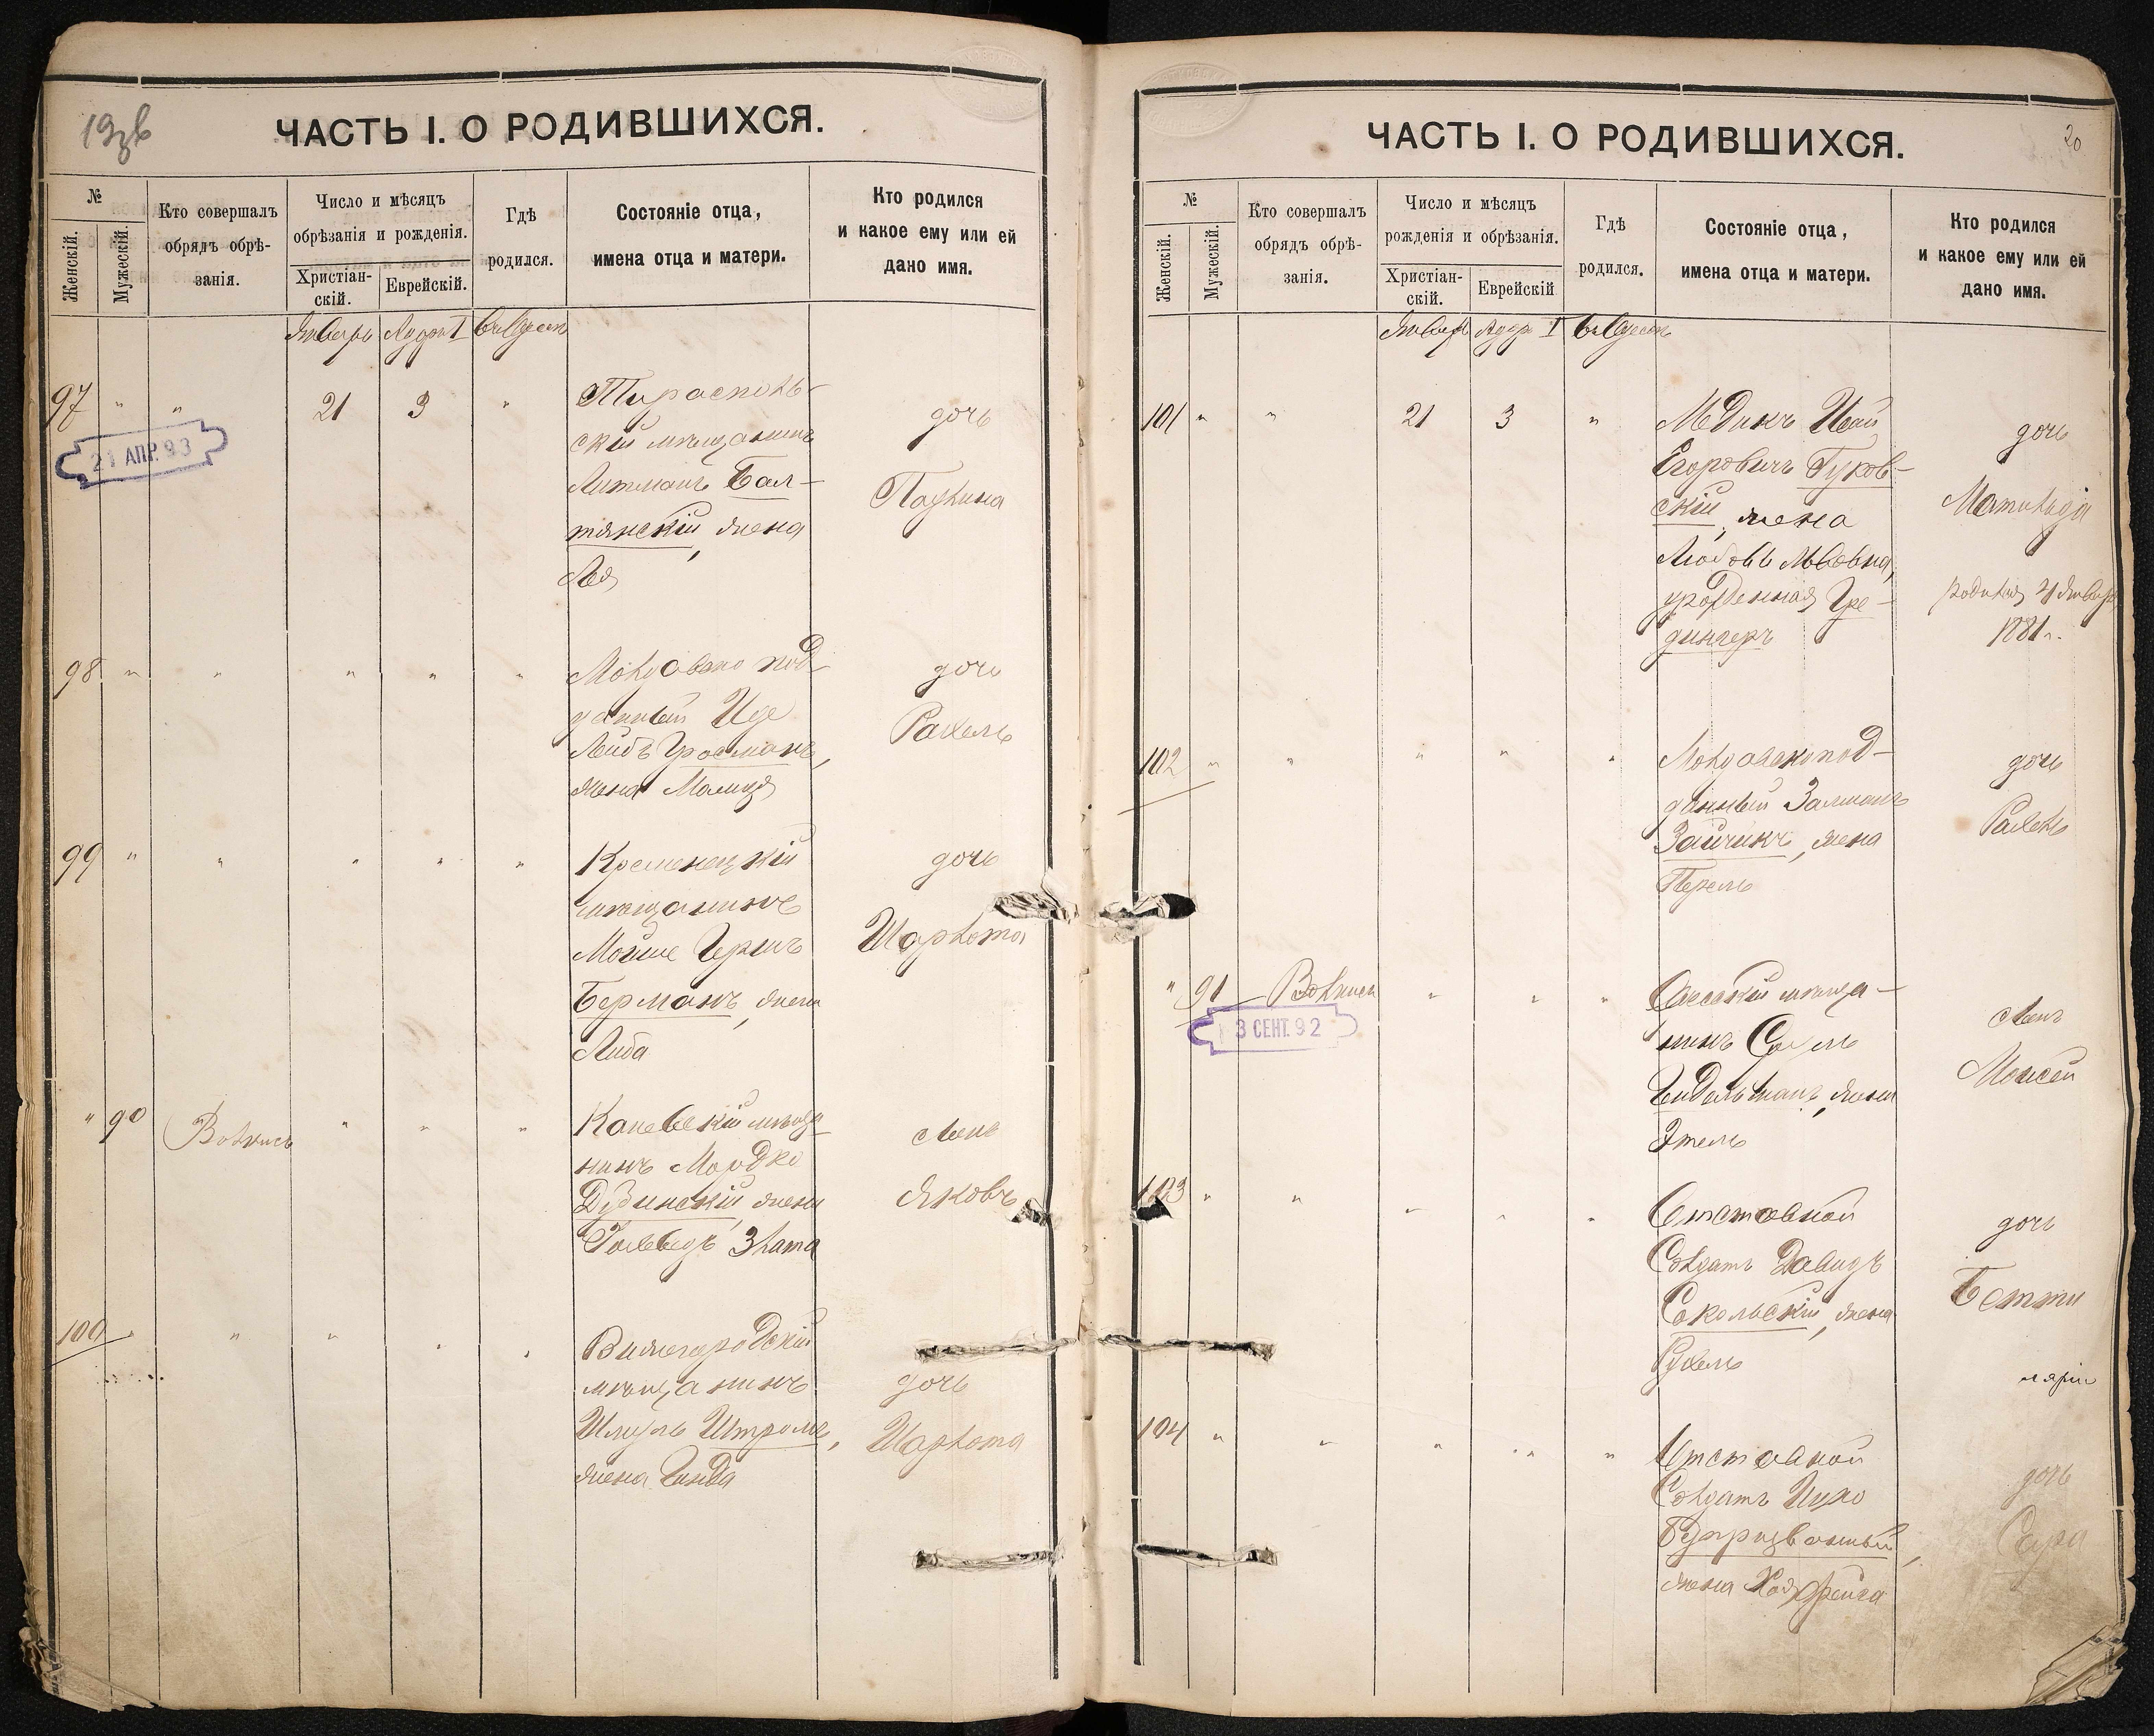 19зв
ЧАСТЬ I. О РОДИВШИХСЯ.
№
Женскій.
Мужескій.
Кто совершалъ
обрядъ обрѣ-
занія.
Число и мѣсяцъ
обрѣзанія и рожденія.
Христіан-
скій.
Еврейскій.
Гдѣ
родился.
Состояніе отца,
имена отца и матери.
Кто родился
и какое ему или ей
дано имя.
Январь Адаръ I въ Одессѣ
97 " " 21 3 "
21 АПР. 93
Тирасполь-
скій мѣщанинъ
Литманъ Бал-
тянскій, жена
Лея
дочь
Паулина
98 " " " " "
Молдавско под-
данный Иде
Лейбъ Гросманъ,
жена Малца
дочь
Рахель
99 " " " " "
Кременецкій
мѣщанинъ
Мойше Герш
Берманъ, жена
Либа
дочь
Шарлота
" 90 " " "
Каневскій мѣща-
нинъ Мордко
Дудинскій, жена
Злата
сынъ
Яковъ
100 " " " " "
мѣщанинъ
Шмуль Штромъ,
жена Гинда
дочь
Шарлота
20
ЧАСТЬ I. О РОДИВШИХСЯ.
№
Женскій.
Мужескій.
Кто совершалъ
обрядъ обрѣ-
занія.
Число и мѣсяцъ
рожденія и обрѣзанія.
Христіан-
скій.
Еврейскій
Гдѣ
родился.
Состояніе отца,
имена отца и матери.
Кто родился
и какое ему или ей
дано имя.
Январь Адаръ I въ Одессѣ
101 " " 21 3 "
Медикъ
Егоровичъ Гуков-
скій, жена
Любовь Львовна,
урожденная Гре-
дингеръ
дочь
Матильда
родилась 21 Января
1881 г.
102 " " " " "
Молдавскопод-
данный Залманъ
Зайчикъ, жена
Перель
дочь
Рахель
" 91 " " "
3 СЕНТ. 92
Одесскій мѣща-
нинъ
Гидальманъ, жена
Этель
сынъ
Моисей
103 " " " " "
Отставной
Солдатъ Давидъ
Сокольскій, жена
Рухель
дочь
Бетти
104 " " " " "
Отставной
Солдатъ
жена Хая Фейга
дочь
Сура